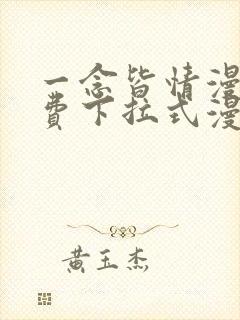 一念皆情漫
费下拉式漫
黄玉杰